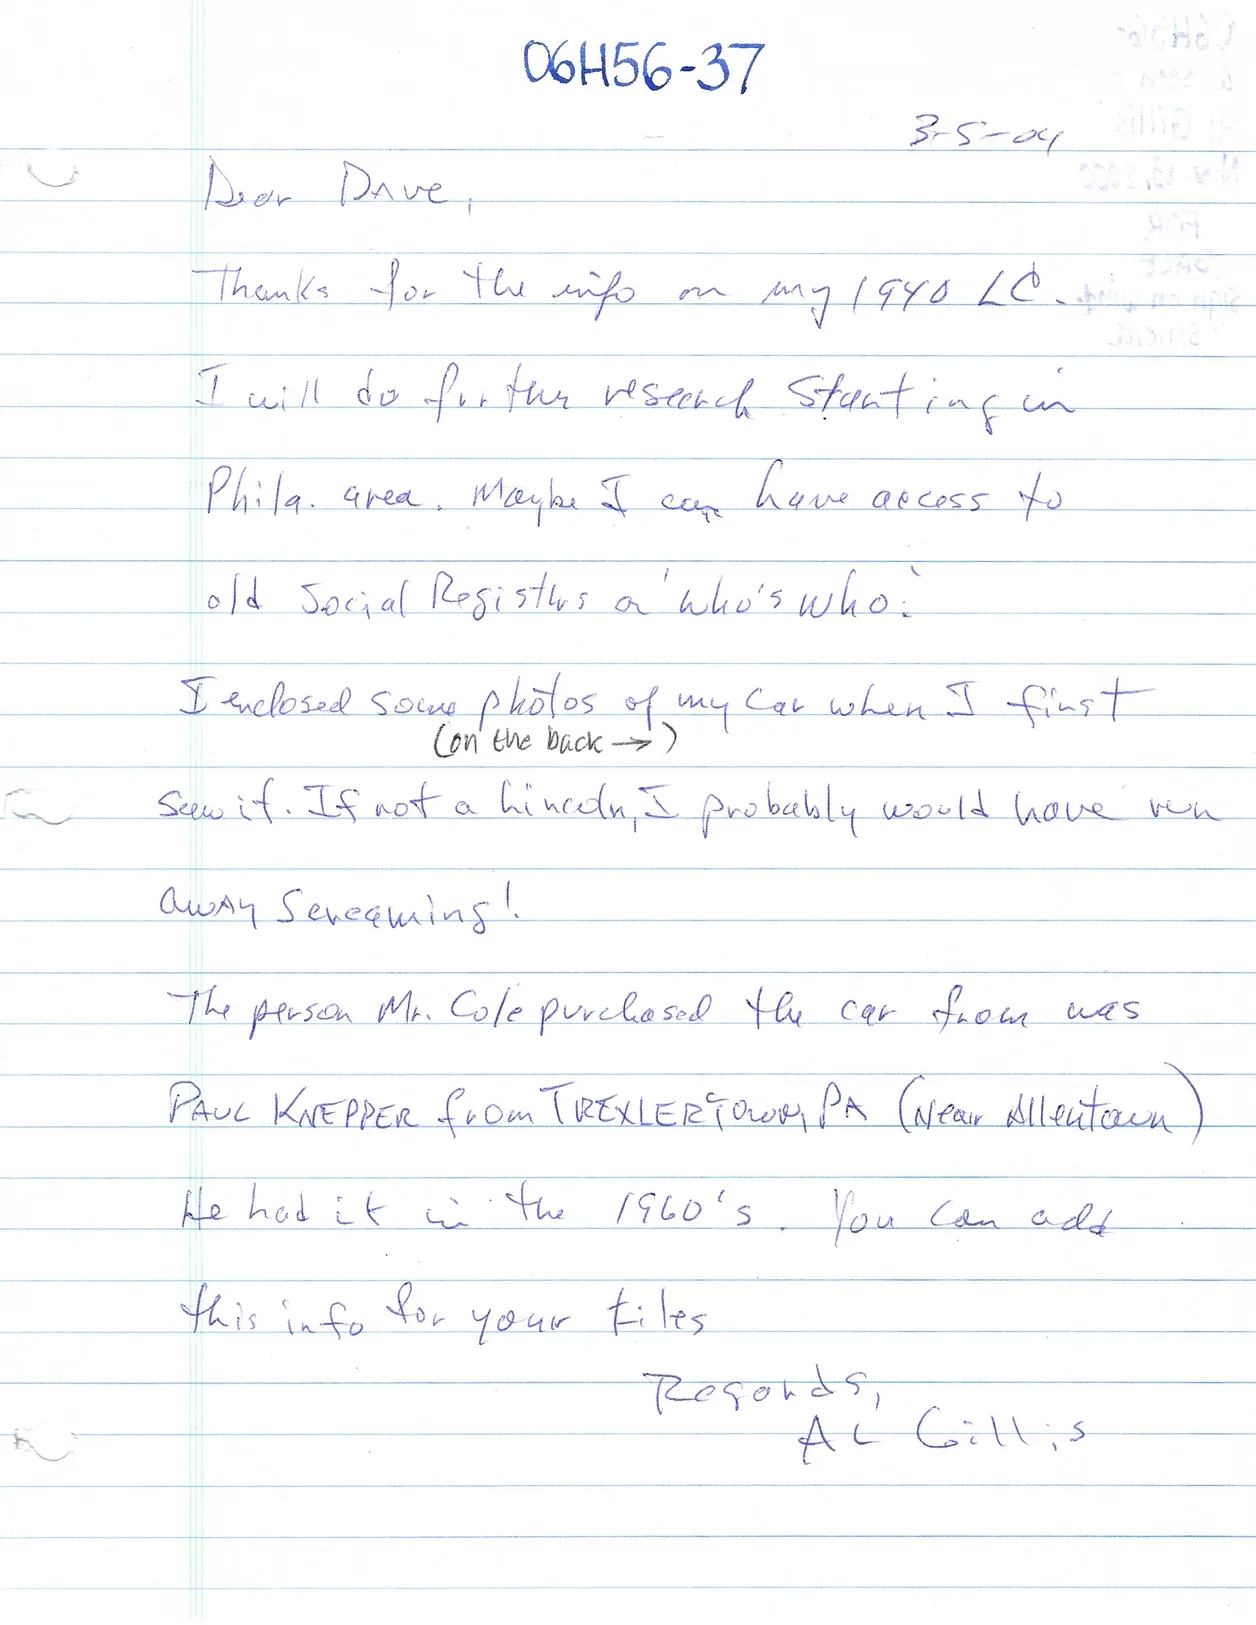 06H56-37
3-5-04
Dear Dave,
Thanks for the info on my 1940 LC.
I will do further research starting in
Phila. area. Maybe I can have access to
old Social Registers or 'who's who.'
I enclosed some photos of my car when I first
(on the back →)
saw it. If not a Lincoln, I probably would have run
away screaming!
The person Mr. Cole purchased the car from was
PAUL KNEPPER from TREXLERTOWN, PA (Near Allentown)
He had it in the 1960's. You can add
this info for your files
Regards,
AL Gillis